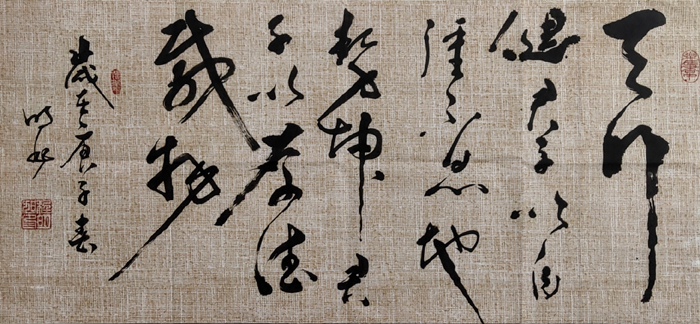 天行
健君子以自
强不息地
勢坤君
子以厚德
載物
歲在庚子春